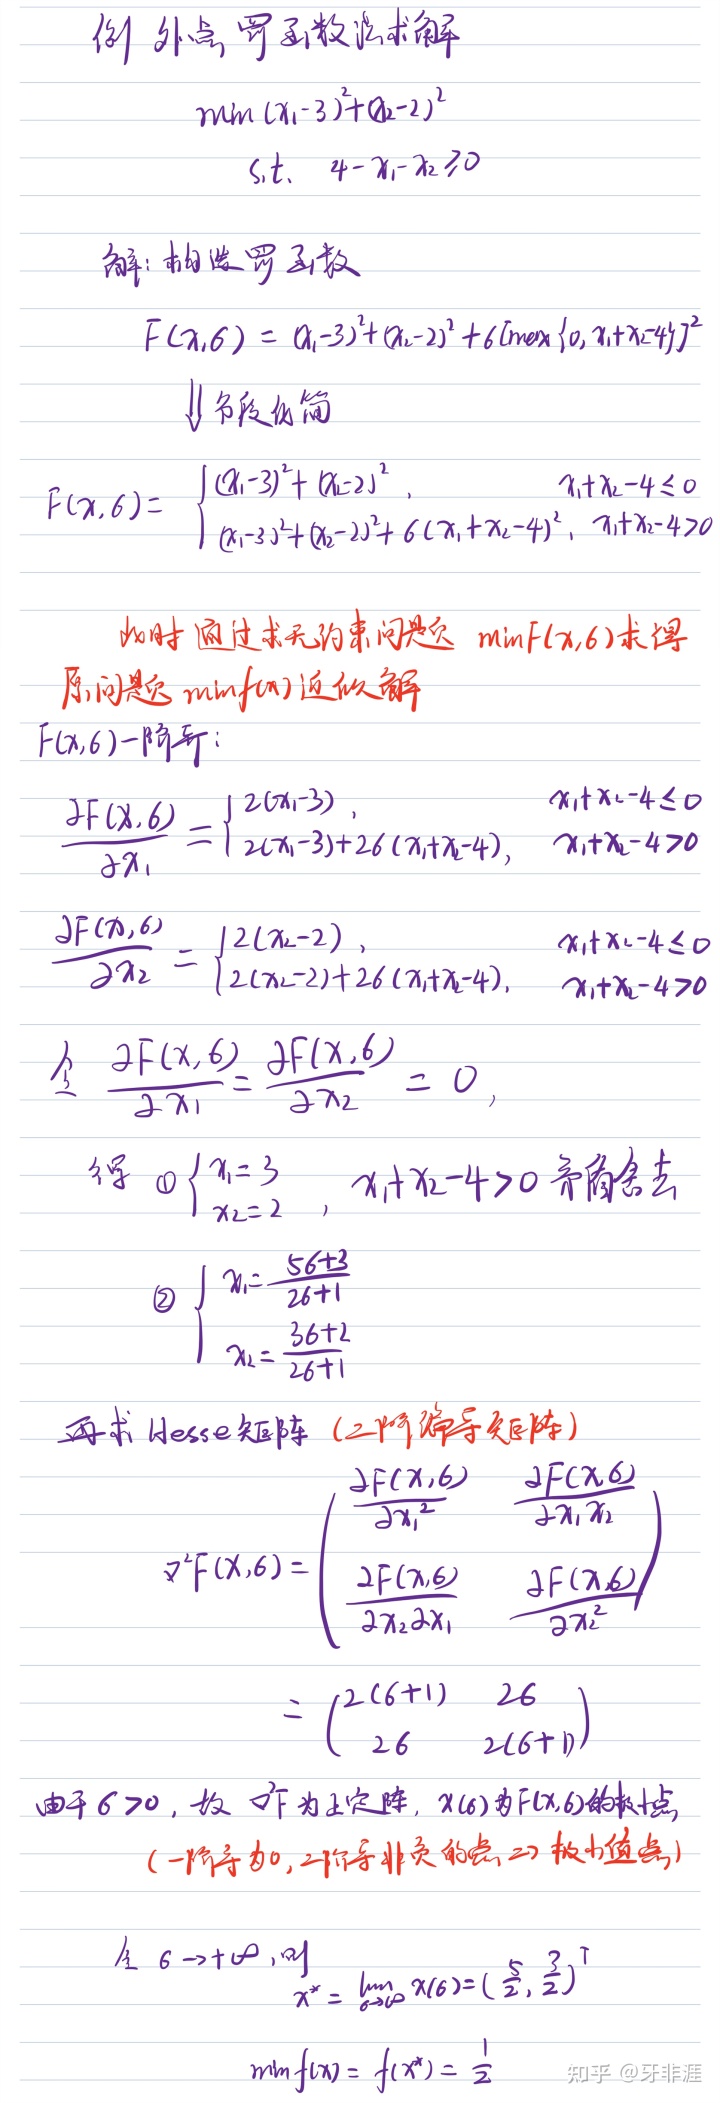 例 外点罚函数法求解
min (x₁-3)²+(x₂-2)²
s.t. 4-x₁-x₂≥0
解: 构造罚函数
F(x,σ) = (x₁-3)²+(x₂-2)²+σ[max{0, x₁+x₂-4}]²
⇓ 分段化简
F(x,σ)= { (x₁-3)²+(x₂-2)², x₁+x₂-4≤0
(x₁-3)²+(x₂-2)²+σ(x₁+x₂-4)², x₁+x₂-4>0
此时通过求无约束问题 minF(x,σ)求得
原问题minf(x)近似解
F(x,σ)一阶导:
∂F(x,σ)/∂x₁ = { 2(x₁-3), x₁+x₂-4≤0
2(x₁-3)+2σ(x₁+x₂-4), x₁+x₂-4>0
∂F(x,σ)/∂x₂ = { 2(x₂-2), x₁+x₂-4≤0
2(x₂-2)+2σ(x₁+x₂-4), x₁+x₂-4>0
令 ∂F(x,σ)/∂x₁ = ∂F(x,σ)/∂x₂ = 0,
得 ① { x₁=3
x₂=2 , x₁+x₂-4>0 矛盾舍去
② { x₁= (5σ+3)/(2σ+1)
x₂= (3σ+2)/(2σ+1)
再求Hesse矩阵 (二阶偏导矩阵)
∇²F(x,σ)= ( ∂F(x,σ)/∂x₁² ∂F(x,σ)/∂x₁x₂
∂F(x,σ)/∂x₂∂x₁ ∂F(x,σ)/∂x₂² )
= ( 2(σ+1) 2σ
2σ 2(σ+1) )
由于σ>0, 故 ∇²F为正定阵, x(σ)为F(x,σ)的极小点
(一阶导为0, 二阶导非负的点 => 极小值点)
令 σ→+∞, 则
x* = lim σ→∞ x(σ)=(5/2, 3/2)ᵀ
minf(x)= f(x*)= 1/2
知乎 @牙非涯